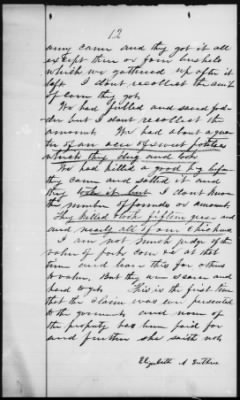 12
army came and they got it all
except three or four bushels
which we gathered up after it
left I dont recollect the amt
of corn they got.
We had pulled and sacred fod-
der but I dont recollect the
amount. We had about a quar
ter of an acre of sweet potatoes
which they dug and took
We had killed a good hog before
they came and salted it and
they took it but I dont know
the number of pounds or amount.
They killed took fifteen geese and
and nearly all of our chickens
I am not much judge of the
value of pork corn &c at that
time and leave this for others
to value. But they were scarce and
hard to get. This is the first time
that the claim was ever presented
to the government and none of
the property has been paid for
and further she saith not
Elizabeth A Guthrie